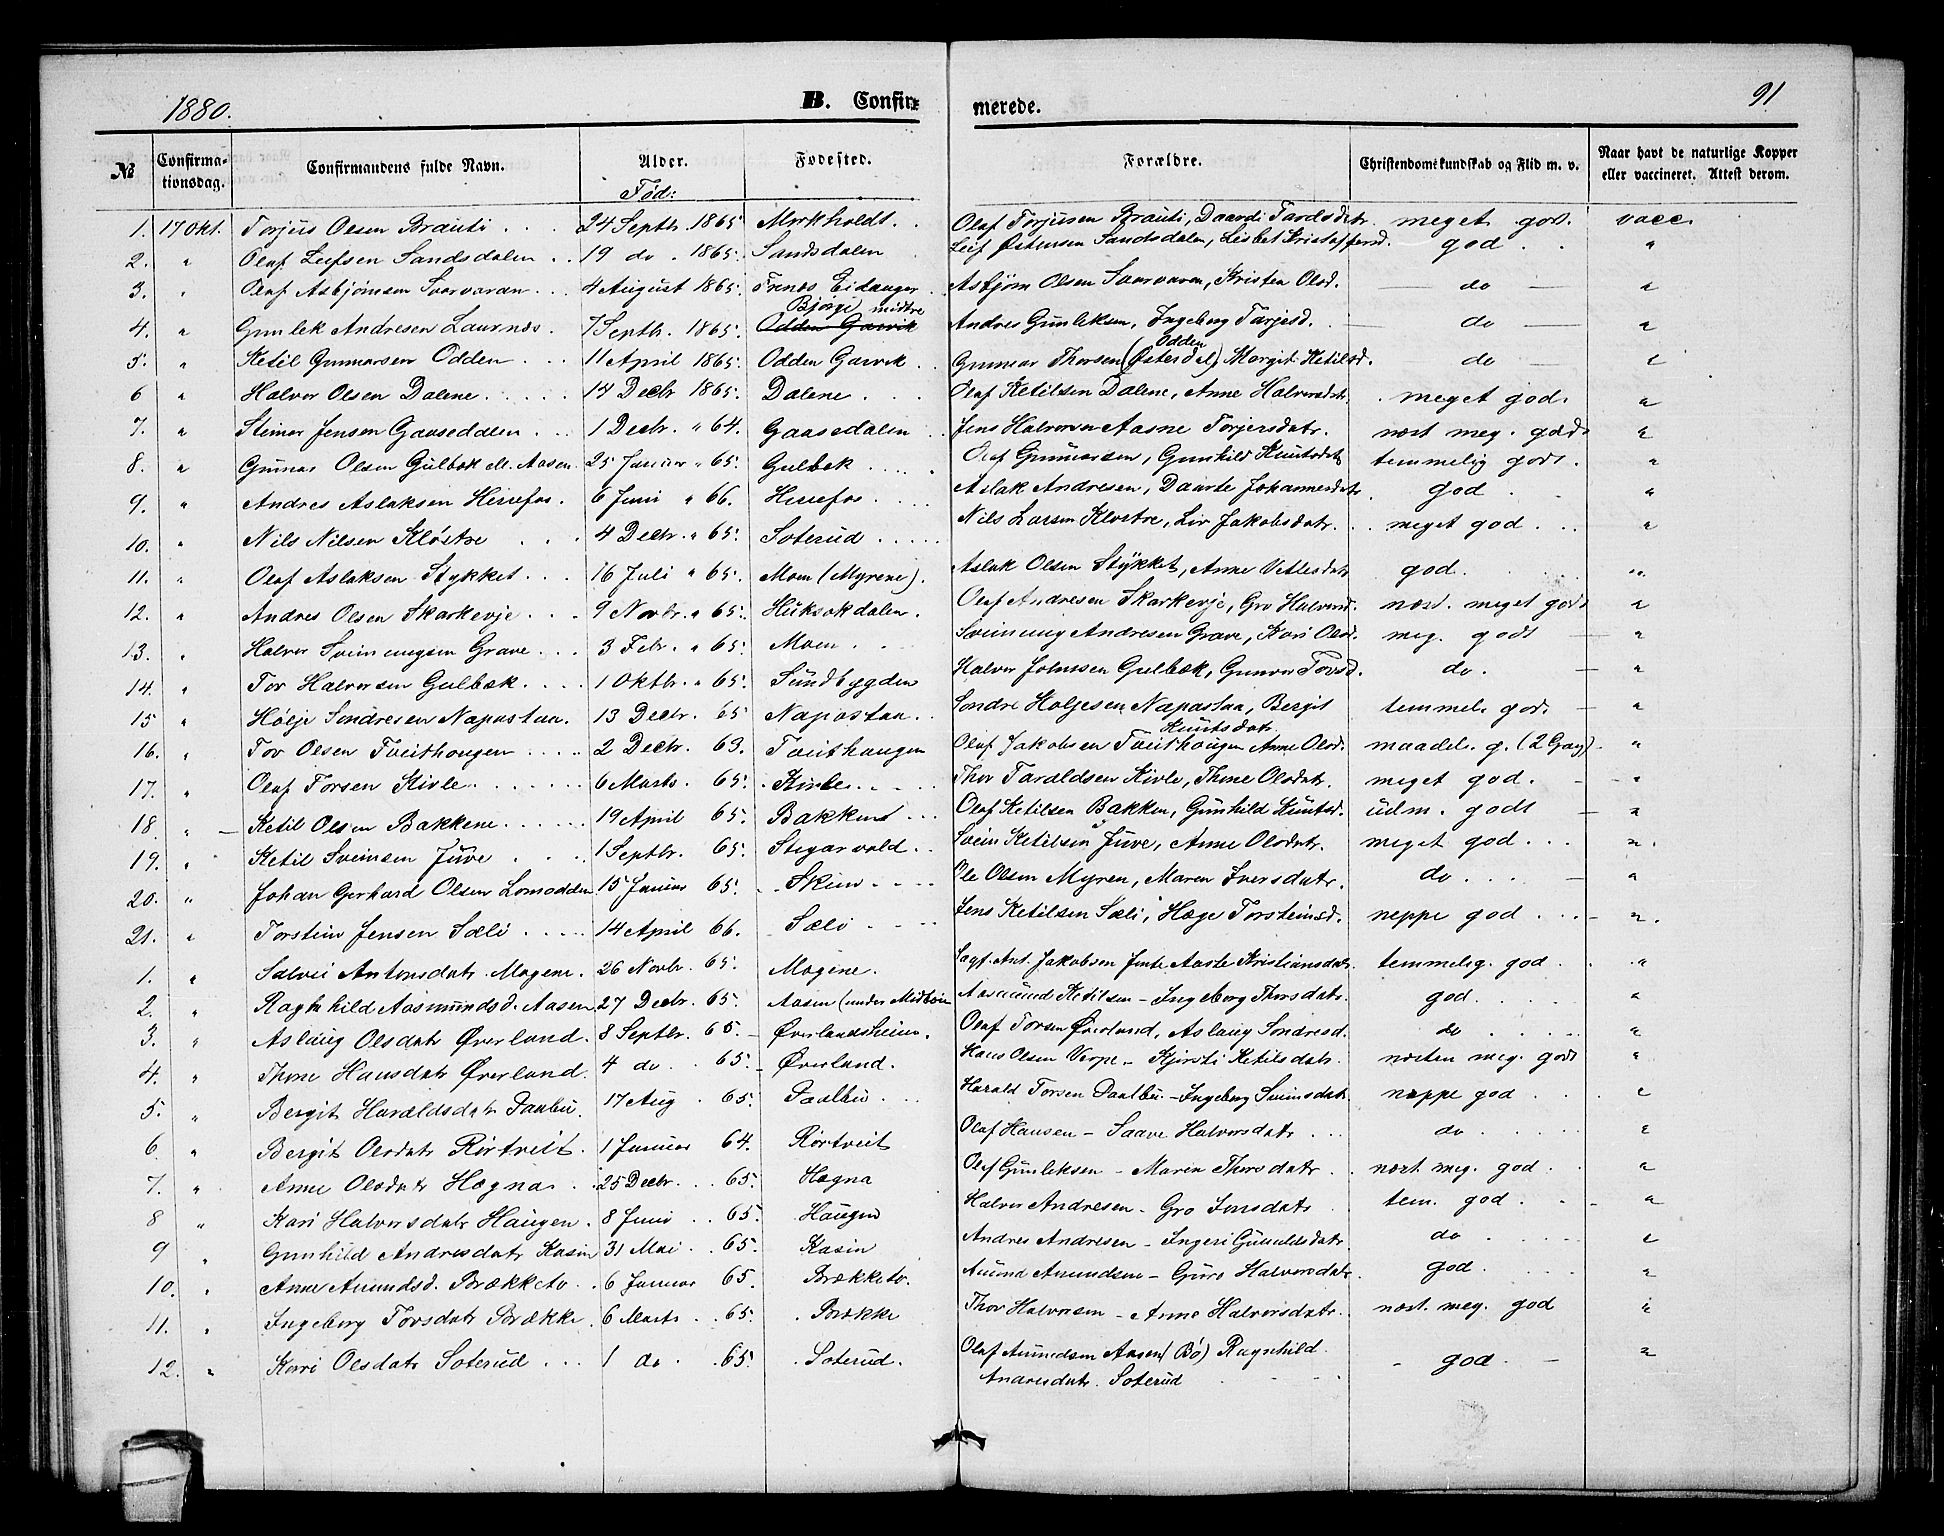 1880. B. Confirmerede. 91
№ Confirmationsdag. Confirmandens fulde Navn. Alder. Fødested. Forældre. Christendomskundskab og Flid m. v. Naar havt de naturlige Kopper eller vaccineret. Attest derom.
Fød:
1. 17 Okt. Torjus Olsen Brauti 24 Septb. 1865. Morkholdt. Olaf Torjusen Brauti, Daardi Tardsdatr. meget god. vacc.
2. " Olaf Leifsen Sandsdalen 19 do 1865. Sandsdalen Leif Østensen Sandsdalen, Lisbet Kristoffersd. god "
3. " Olaf Asbjørnsen Svarvaran 4 August 1865. Eidanger Asbjørn Olsen Svarvaren, Kristen Olsd. do "
Bjørge midtre
4. " Gunlek Andresen Laurnes 7 Septb. 1865. Odden Garvik Andres Gunleksen, Ingeborg Tarjesd. do "
Odden
5. " Ketil Gunnarsen Odden 11 April 1865. Odden Garvik Gunnar Thorsen (Østerdal), Margit Ketilsd. do "
6 " Halvor Olsen Dalene 14 Decbr 1865. Dalene Olaf Ketilsen Dalene, Anne Halvorsdatr. meget god. "
7. " Steinar Jensen Gaasedalen 1 Decbr. " 64. Gaasedalen Jens Halvorsen Aasne Torjersdatr. næst meg. god "
8. " Gunnar Olsen Gulbæk el. Aasen 25 Januar " 65. Gulbæk Olaf Gunnarsen, Gunhild Knutsdatr temmelig god. "
9. " Andres Aslaksen Hissefos. 6 Juni " 66. Hissefos Aslak Andresen, Daarte Johannesdatr. god "
10. " Nils Nilsen Kløstre 4 Decbr. " 65. Soterud Nils Larsen Kløstre, Liv Jakobsdatr. meget god "
11. " Olaf Aslaksen Stykket 16 Juli " 65. Moen (Myrene). Aslak Olsen Stykket, Anne Vetlesdatr god. "
12. " Andres Olsen Skarkevje 9 Novbr. " 65. Huksokdalen. Olaf Andresen Skarkevje, Gro Halvorsd. næst. meget god "
13. " Halvor Sveinungsen Grave 3 Febr. " 65. Moen Sveinung Andresen Grave, Kari Olsd. meg. god "
14. " Tor Halvorsen Gulbæk. 1 Oktb. " 65. Sundbygden Halvor Johnsen Gulbæk, Gunvor Torsd. do. "
15 " Hølje Sondresen Napastaa. 13 Decbr. 65 Napastaa Sondre Holjesen Napastaa, Bergit temmel. god. "
Knutsdatr.
16. " Tor Olsen Tveithaugen 2 Decbr. 63. Tveithaugen Olaf Jakobsen Tveithaugen Anne Olsd. maadel. g. (2 Gang) "
17. " Olaf Torsen Kivle 6 Marts. 65. Kivle Thor Taraldsen Kivle, Thone Olsdatr. meget god. "
18. " Ketil Olsen Bakkene 19 April 65. Bakkene Olaf Ketilsen Bakken, Gunhild Knutsd. udm. god "
19. " Ketil Sveinsen Juve 1 Septbr. 65. Stigarvald Svein Ketilsen Juve, Anne Olsdatr. meget god "
20. " Johan Gerhard Olsen Lomodden 15 Januar 65. Skien Ole Olsen Myren, Maren Iversdatr. do "
21. " Torstein Jensen Sæli 14 April 66. Sæli Jens Ketilsen Sæli, Hæge Torsteinsd. neppe god "
1. " Salvei Antonsdatr Mogene. 26 Novbr. 65. Mogene. Sagf. Ant. Jakobsen Jente Aaste Kristiansdatr. temmelig. god "
2. " Raghnhild Aasmundsd. Aasen 27 Decbr. 65. Aasen (under Midbøen Aasmund Ketilsen - Ingeborg Thorsdatr. god. "
3. " Aslaug Olsdatr Øverland. 8 Septbr. 65. Øverlandsheien. Olaf Torsen Øverland, Aslaug Sondresd. do "
4. " Thone Hansdatr Øverland. 4 do 65. Øverland. Hans Olsen Verpe - Kjersti Ketilsdatr. næsten meg. god "
5. " Bergit Haraldsdatr Daalbu. 17 Aug 65. Daalbu Harald Torsen Daalbu - Ingeborg Sveinsdatr. neppe god "
6 " Bergit Olsdatr Rørtveit. 1 Januar 64. Rørtveit Olaf Hansen - Saave Halvorsdatr do "
7. " Anne Olsdatr Hægna 25 Decbr. 65. Hægna Olaf Gunleksen - Maren Thorsdatr. næst meg. god "
8 " Kari Halvorsdatr Haugen. 8 Juni 65. Haugen Halvor Andresen - Gro Jensdatr tem. god "
9 " Gunhild Andresdatr Kasin 31 Mai 65. Kasin Andres Andresen - Ingeri Gunuldsdatr. do "
10. " Anne Amundsd. Brækketo 6 Januar 65. Brækketo. Amund Amundsen - Guro Halvorsdatr. god "
11. " Ingeborg Torsdatr Brække. 6 Marts 65. Brække Thor Halvorsen - Anne Halvorsdatr. næst. meg. god "
12. " Kari Olsdatr Soterud 1 do 65. Soterud. Olaf Amundsen Aasen (Bø) Ragnhild god. "
Andresdatr. Soterud